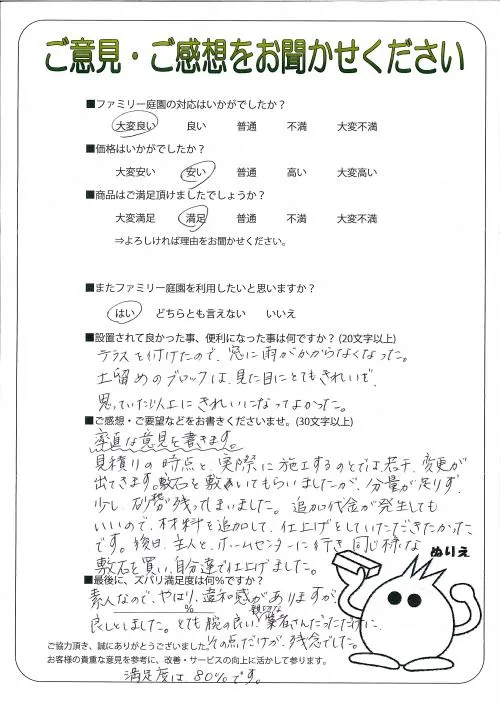 ご意見・ご感想をお聞かせください
■ファミリー庭園の対応はいかがでしたか？
大変良い 良い 普通 不満 大変不満
■価格はいかがでしたか？
大変安い 安い 普通 高い 大変高い
■商品はご満足頂けましたでしょうか？
大変満足 満足 普通 不満 大変不満
⇒よろしければ理由をお聞かせください。
■またファミリー庭園を利用したいと思いますか？
はい どちらとも言えない いいえ
■設置されて良かった事、便利になった事は何ですか？(20文字以上)
テラスを付けたので、窓に雨がかからなくなった。
土留めのブロックは、見た目にとてもきれいで、
思っていた以上にきれいになってよかった。
■ご感想・ご要望などをお書きくださいませ。(30文字以上)
率直な意見を書きます。
見積りの時点と、実際に施工するのとでは、若干、変更が
出てきます。敷石を敷いてもらいましたが、分量が足りず、
少し、砂利が残ってしまいました。追加代金が発生しても
いいので、材料を追加して、仕上げをしていただきたかった
です。後日、主人と、ホームセンターに行き、同じ様な
敷石を買い、自分達で仕上げました。
ぬりえ
■最後に、ズバリ満足度は何%ですか？
素人なので、やはり、違和感がありますが、
%
良しとしました。とても腕の良い、親切な業者さんだっただけに、
ご協力頂き、誠にありがとうございました。
その点だけが、残念でした。
お客様の貴重な意見を参考に、改善・サービスの向上に活かして参ります。
満足度は 80%です。